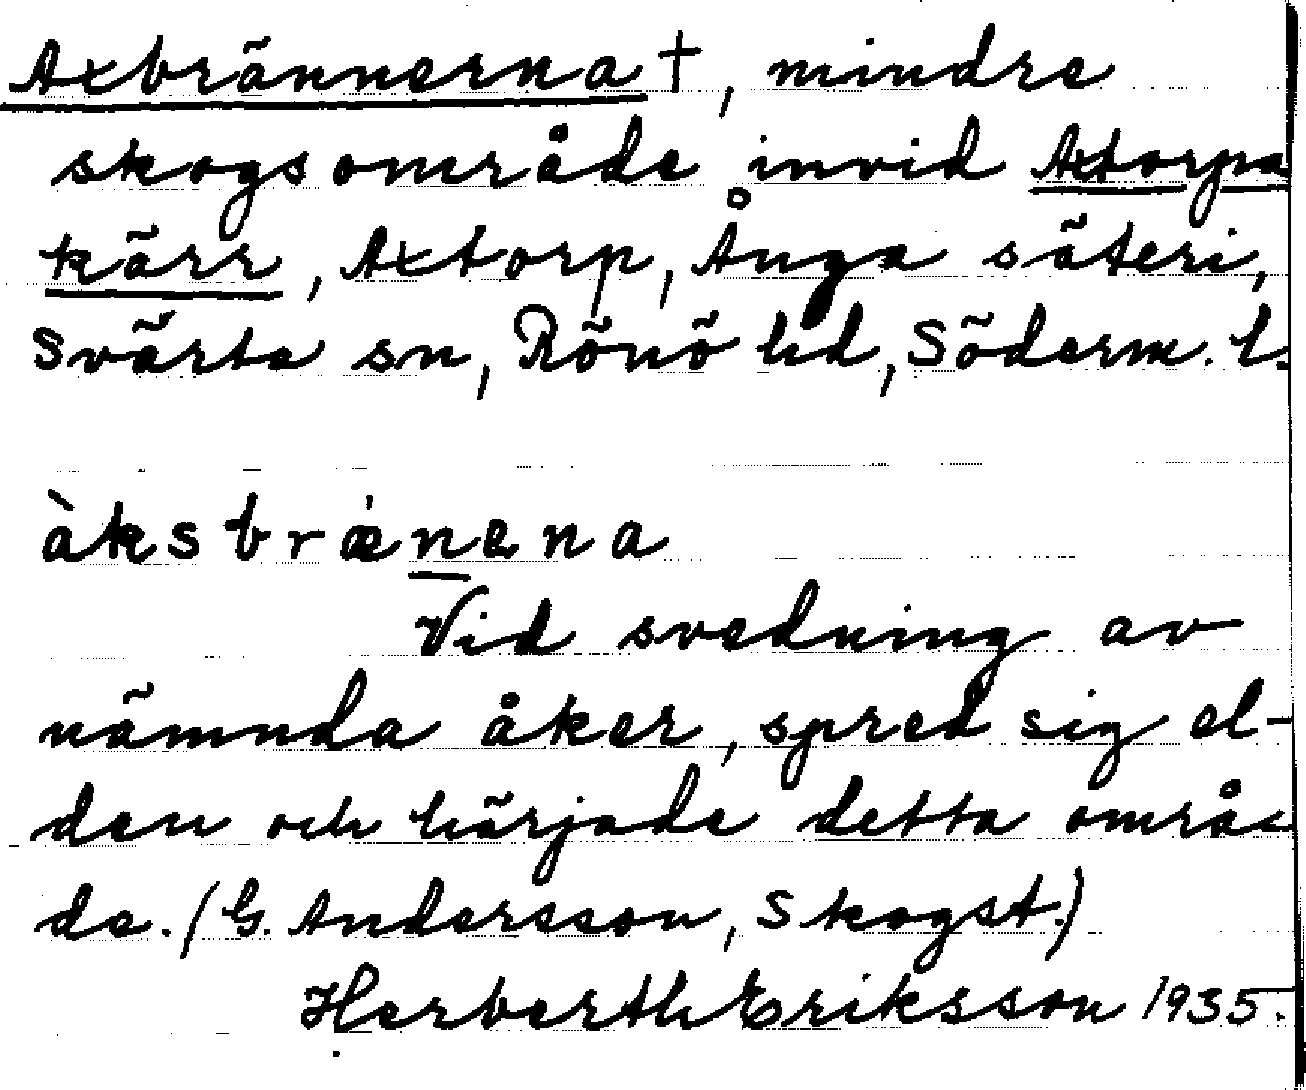 Axbrännerna †, mindre
skogsområde invid Axtorpa
kärr, Axtorp, Ånga säteri,
Svärta sn, Rönö hd, Söderm. l.
àksbrænena
Vid svedning av
nämnda åker, spred sig el-
den och härjade detta områ-
de. (G. Andersson, Skogst.)
Herberth Eriksson 1935.